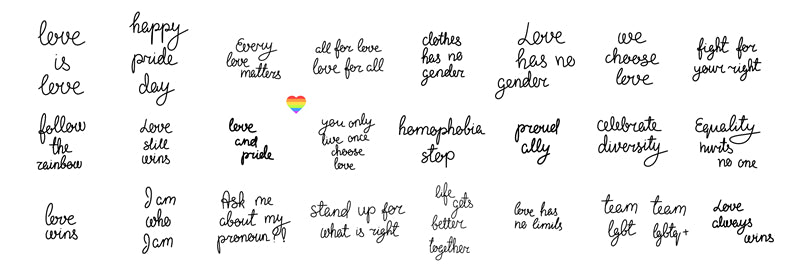 love
is
love
happy
pride
day
Every
love
matters
all for love
love for all
clothes
has no
gender
Love
has no
gender
we
choose
love
fight for
your right
follow
the
rainbow
Love
still
wins
love
and
pride
you only
live once
choose
love
homophobia
stop
proud
ally
celebrate
diversity
Equality
hurts
no one
love
wins
I am
who
I am
Ask me
about my
pronoun?!
stand up for
what is right
life
gets
better
together
love has
no limits
team
lgbt
team
lgbtq+
Love
always
wins